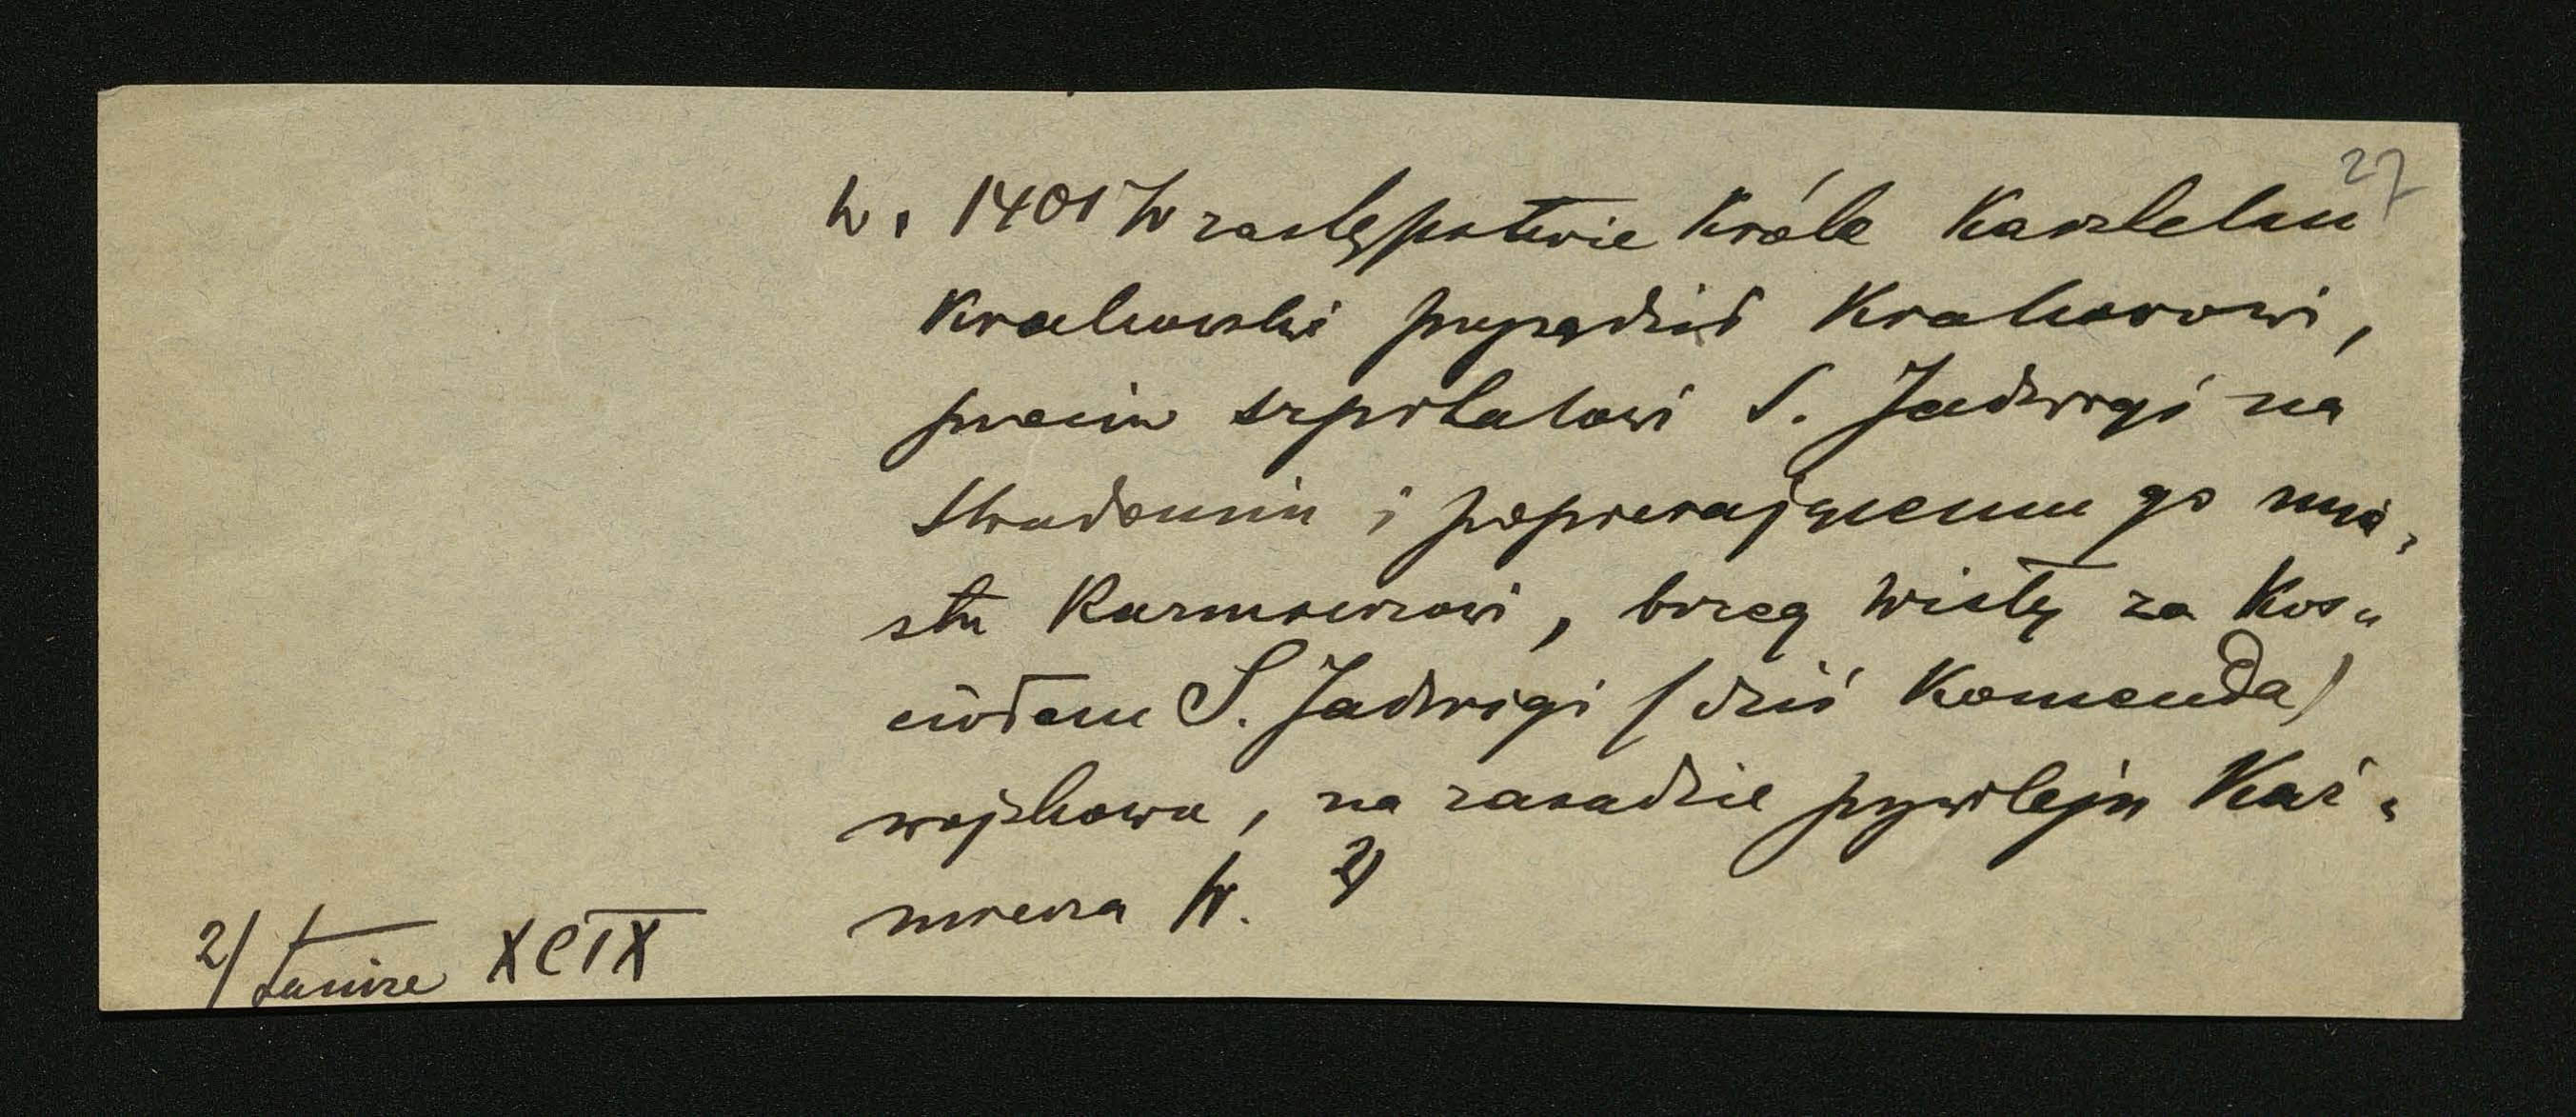 27
w r. 1401 W zastępstwie króla Kasztelan
Krakowski przysądził Krakowowi,
przeciw szpitalowi S. Jadwigi na
Stradomiu i popierającemu go mia-
stu Kazimierzowi, brzeg Wisły za koś-
ciołem S. Jadwigi (dziś Komenda)
wojskowa, na zasadzie przywileju Kaź-
mierza W. 2)
2/ Tamże XCIX